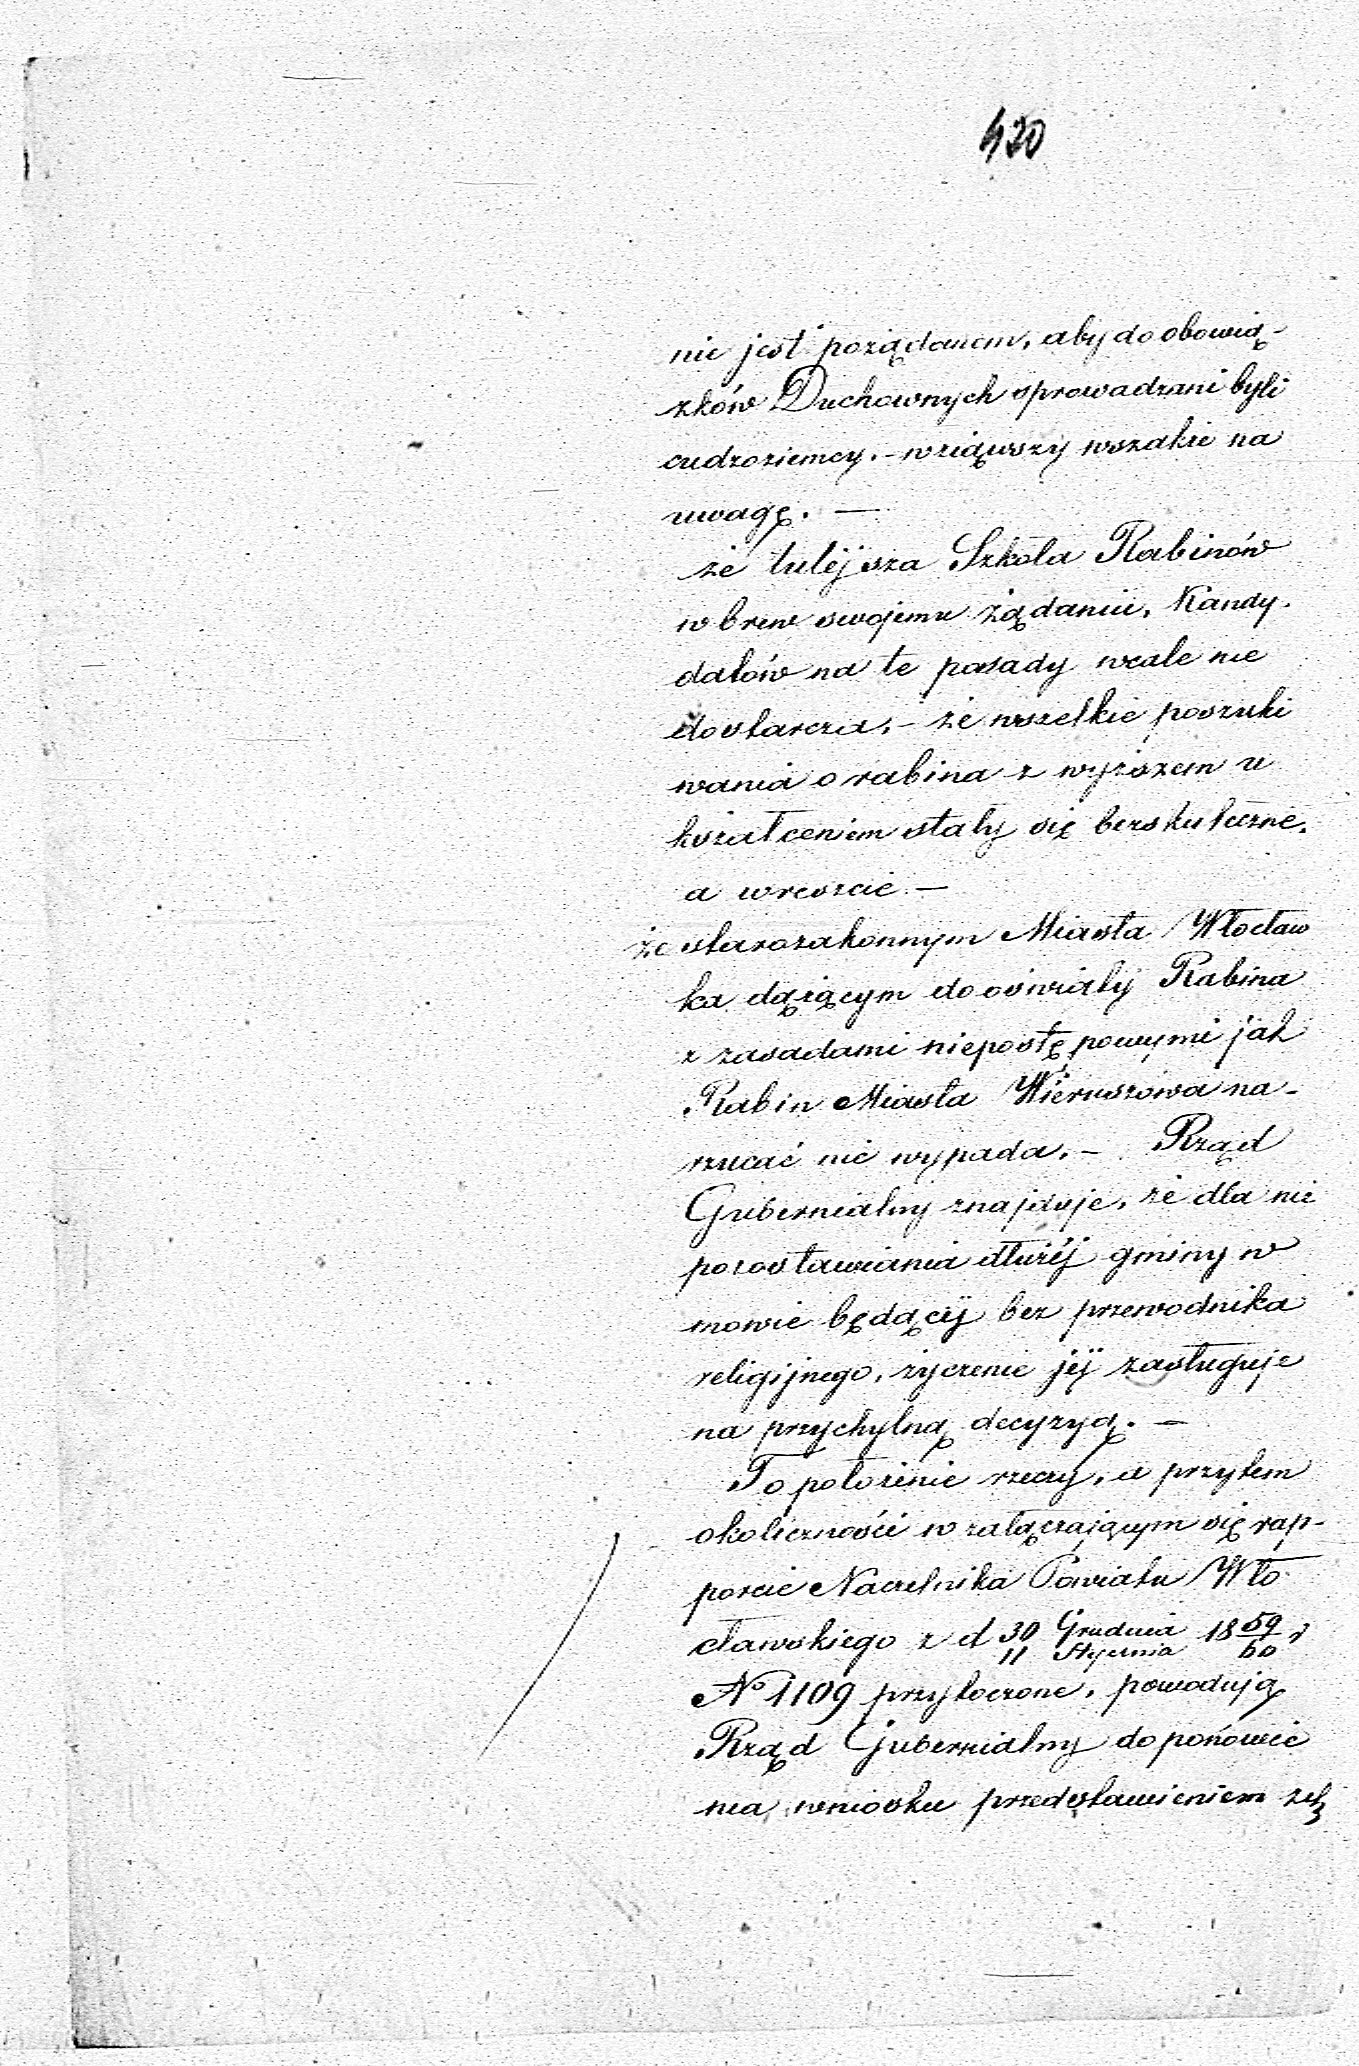 420
nie jest pożądanem, aby do obowią-
zków Duchownych sprowadzani byli
cudzoziemcy. - wziąwszy wszakże na
uwagę. —
że tutéjsza Szkoła Rabinów
wbrew swojemu żądaniu, Kandy.
datów na te posady wcale nie
dostarcza, - że wszelkie poszuki
wania o rabina z wyższem u
kształceniem stały się bezskuteczne,
a wreszcie —
że starozakonnym Miasta Włocław
ka dążącym do oświaty Rabina
z zasadami niepostępowymi jak
Rabin Miasta Wieruszowa na-
rzucać nie wypada. - Rząd
Gubernialny znajduje, że dla nie
pozostawiania dłużéj gminy w
mowie będącéj bez przewodnika
religijnego, życzenie jéj zasługuje
na przychylną decyzyą. —
To położenie rzeczy, a przytem
okoliczności w załączającym się rap-
porcie Naczelnika Powiatu Wło
cławskiego z d 30/11 Grudnia/Stycznia 18 59/60 r
No 1109 przytoczone, powodują
Rząd Gubernialny do ponowie
nia wniosku przedstawieniem